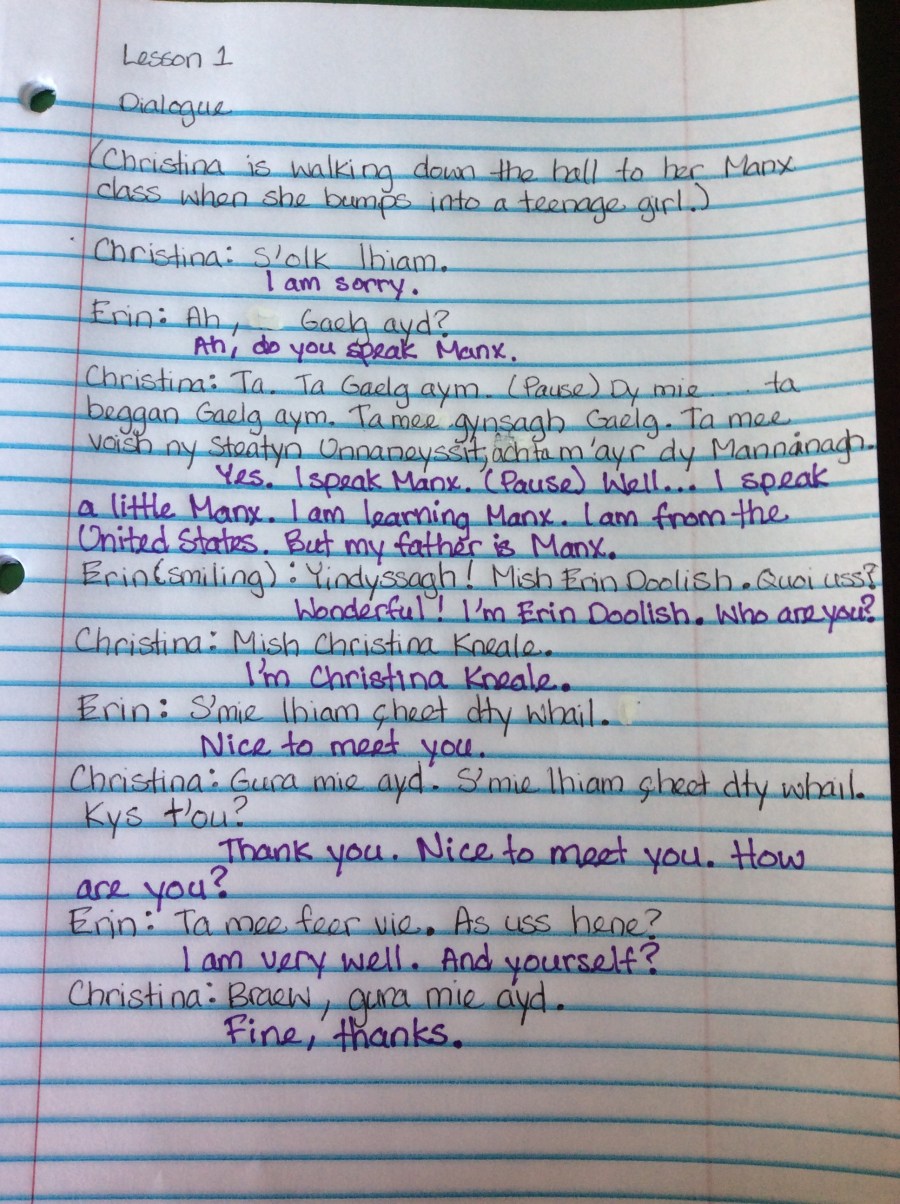 Lesson 1
Dialogue
(Christina is walking down the hall to her Manx
class when she bumps into a teenage girl.)
Christina: S'olk lhiam.
I am sorry.
Erin: Ah, Gaelg ayd?
Ah, do you speak Manx.
Christina: Ta. Ta Gaelg aym. (Pause) Dy mie.... ta
beggan Gaelg aym. Ta mee gynsagh Gaelg. Ta mee
voish ny Steatyn Unnaneyssit, ach ta m'ayr dy Mannanagh.
Yes. I speak Manx. (Pause) Well... I speak
a little Manx. I am learning Manx. I am from the
United States. But my father is Manx.
Erin (smiling): Yindyssagh! Mish Erin Doolish. Quoi uss?
Wonderful! I'm Erin Doolish. Who are you?
Christina: Mish Christina Kneale.
I'm Christina Kneale.
Erin: S'mie lhiam çheet dty whail.
Nice to meet you.
Christina: Gura mie ayd. S'mie lhiam çheet dty whail.
Kys t'ou?
Thank you. Nice to meet you. How
are you?
Erin: Ta mee feer vie. As uss hene?
I am very well. And yourself?
Christina: Braew, gura mie ayd.
Fine, thanks.